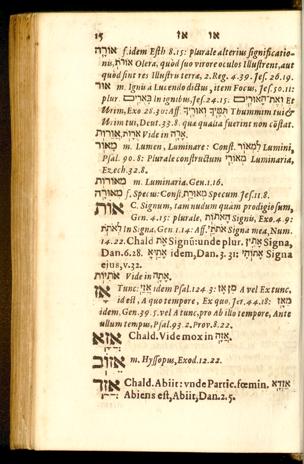 15 או אז
אוֹרָה f. idem Esth 8.15: plurale alterius significationis,
אוֹרֹת Olera, quòd suo virore oculos Illustrent, aut
quòd sint res Illustru terræ, 2. Reg. 4.39. Jes. 26.19.
אוּר m. Ignis à Lucendo dictus, item Focus, Jes. 50.11:
plur. אֻרִים In ignibus, Jes. 24.15: Et
Urim, Exo 28.30: Aff. תֻּמֶּיךָ וְאוּרֶיךָ Thummim tui &
Urim tui, Deut. 33.8. qua qualia fuerint non cōstat.
Vide in אָרָה.
מָאוֹר m. Lumen, Luminare: Const. מְאוֹר Lumini,
Psal. 90.8: Plurale constructum מְאוֹרֵי Luminaria,
Ezech. 32.8.
מְאוֹרוֹת m. Luminaria. Gen. 1.16.
f. Specus: Const. Specum Jes. 11.8.
אוֹת C. Signum, tam nudum quàm prodigiosum,
Gen. 4.15: plurale, הָאֹתוֹת Signis, Exo. 4.9:
לְאֹתֹת In signa. Gen. 1.14: Aff. Signa mea, Num.
14.22. Chald אָת Signū: unde plur. אָתִין Signa,
Dan. 6.28. אָתַיָּא idem, Dan. 3.31: אָתוֹהִי Signa
ejus, v. 32.
Vide in אָתָה.
אָז Tunc: אֲזַי idem Psal. 124 3: מֵאָז A vel Ex tunc,
id est, A quo tempore, Ex quo, Jer. 44.18:
idem, Gen. 39.5. vel A tunc, pro Ab illo tempore, Ante
ullum tempus, Psal. 93.2. Prov. 8.22.
אֲזָא Chald. Vide mox in אֲזָה.
אֵזוֹב m. Hyssopus, Exod. 12.22.
אֲזַד Chald. Abiit: vnde Partic. fœmin. אַזְדָּא
Abiens est, Abiit, Dan. 2.5.